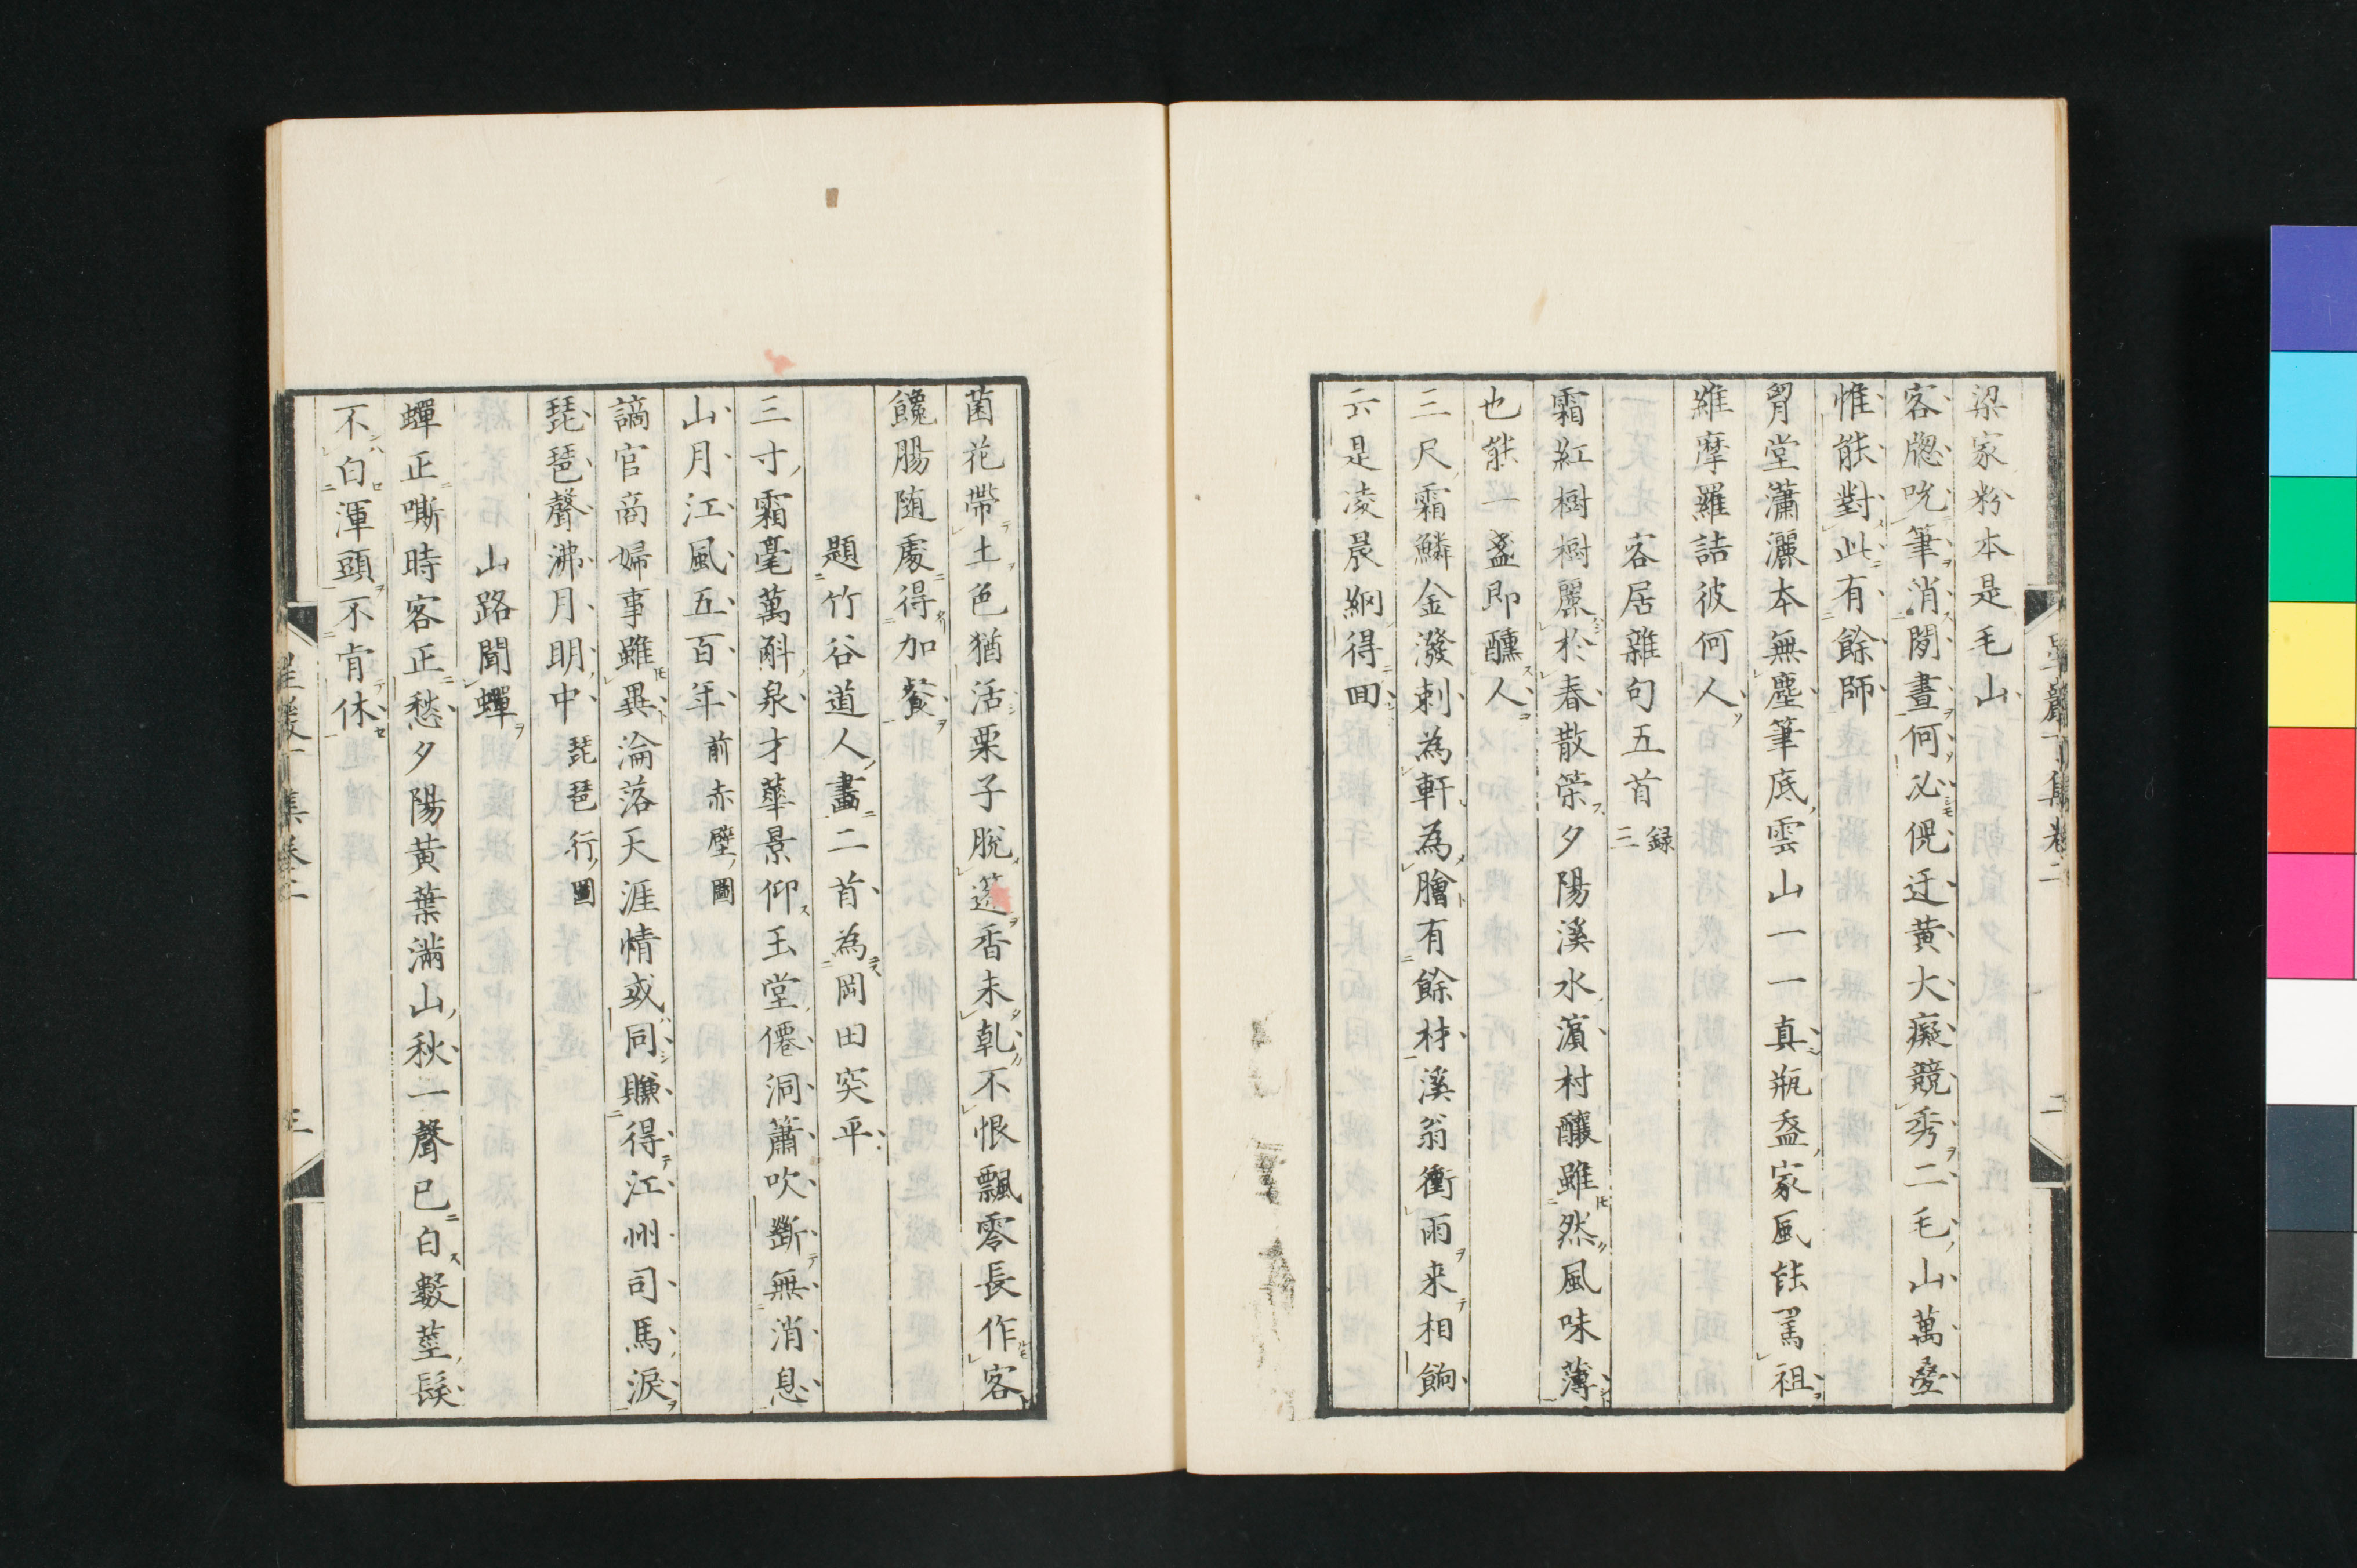 梁家粉本是毛山
客牕吮筆消閒晝何必倪迂黃大癡競秀二毛山萬疊
惟能對此有餘師
胷堂瀟灑本無塵筆底雲山一一真瓶盋家風能罵祖
維摩羅詰彼何人
客居雜句五首 録三
霜紅樹樹麗於春散策夕陽溪水濵村釀雖然風味薄
也能一盞即醺人
三尺霜鱗金潑剌為軒為膾有餘材溪翁衝雨来相餉
云是凌晨網得回
星巖丁集卷二 二
菌花帶土色猶活栗子脫蓬香未乾不恨飄零長作客
饞腸随處得加餐
題竹谷道人畫二首為岡田奕平
三寸霜毫萬斛泉才華景仰玉堂僊洞簫吹斷無消息
山月江風五百年 前赤壁圖
謫官商婦事雖異淪落天涯情或同賺得江州司馬淚
琵琶聲沸月明中 琵琶行圖
山路聞蟬
蟬正嘶時客正愁夕陽黃葉滿山秋一聲已白數莖髮
不白渾頭不肯休
星巖丁集卷二 三